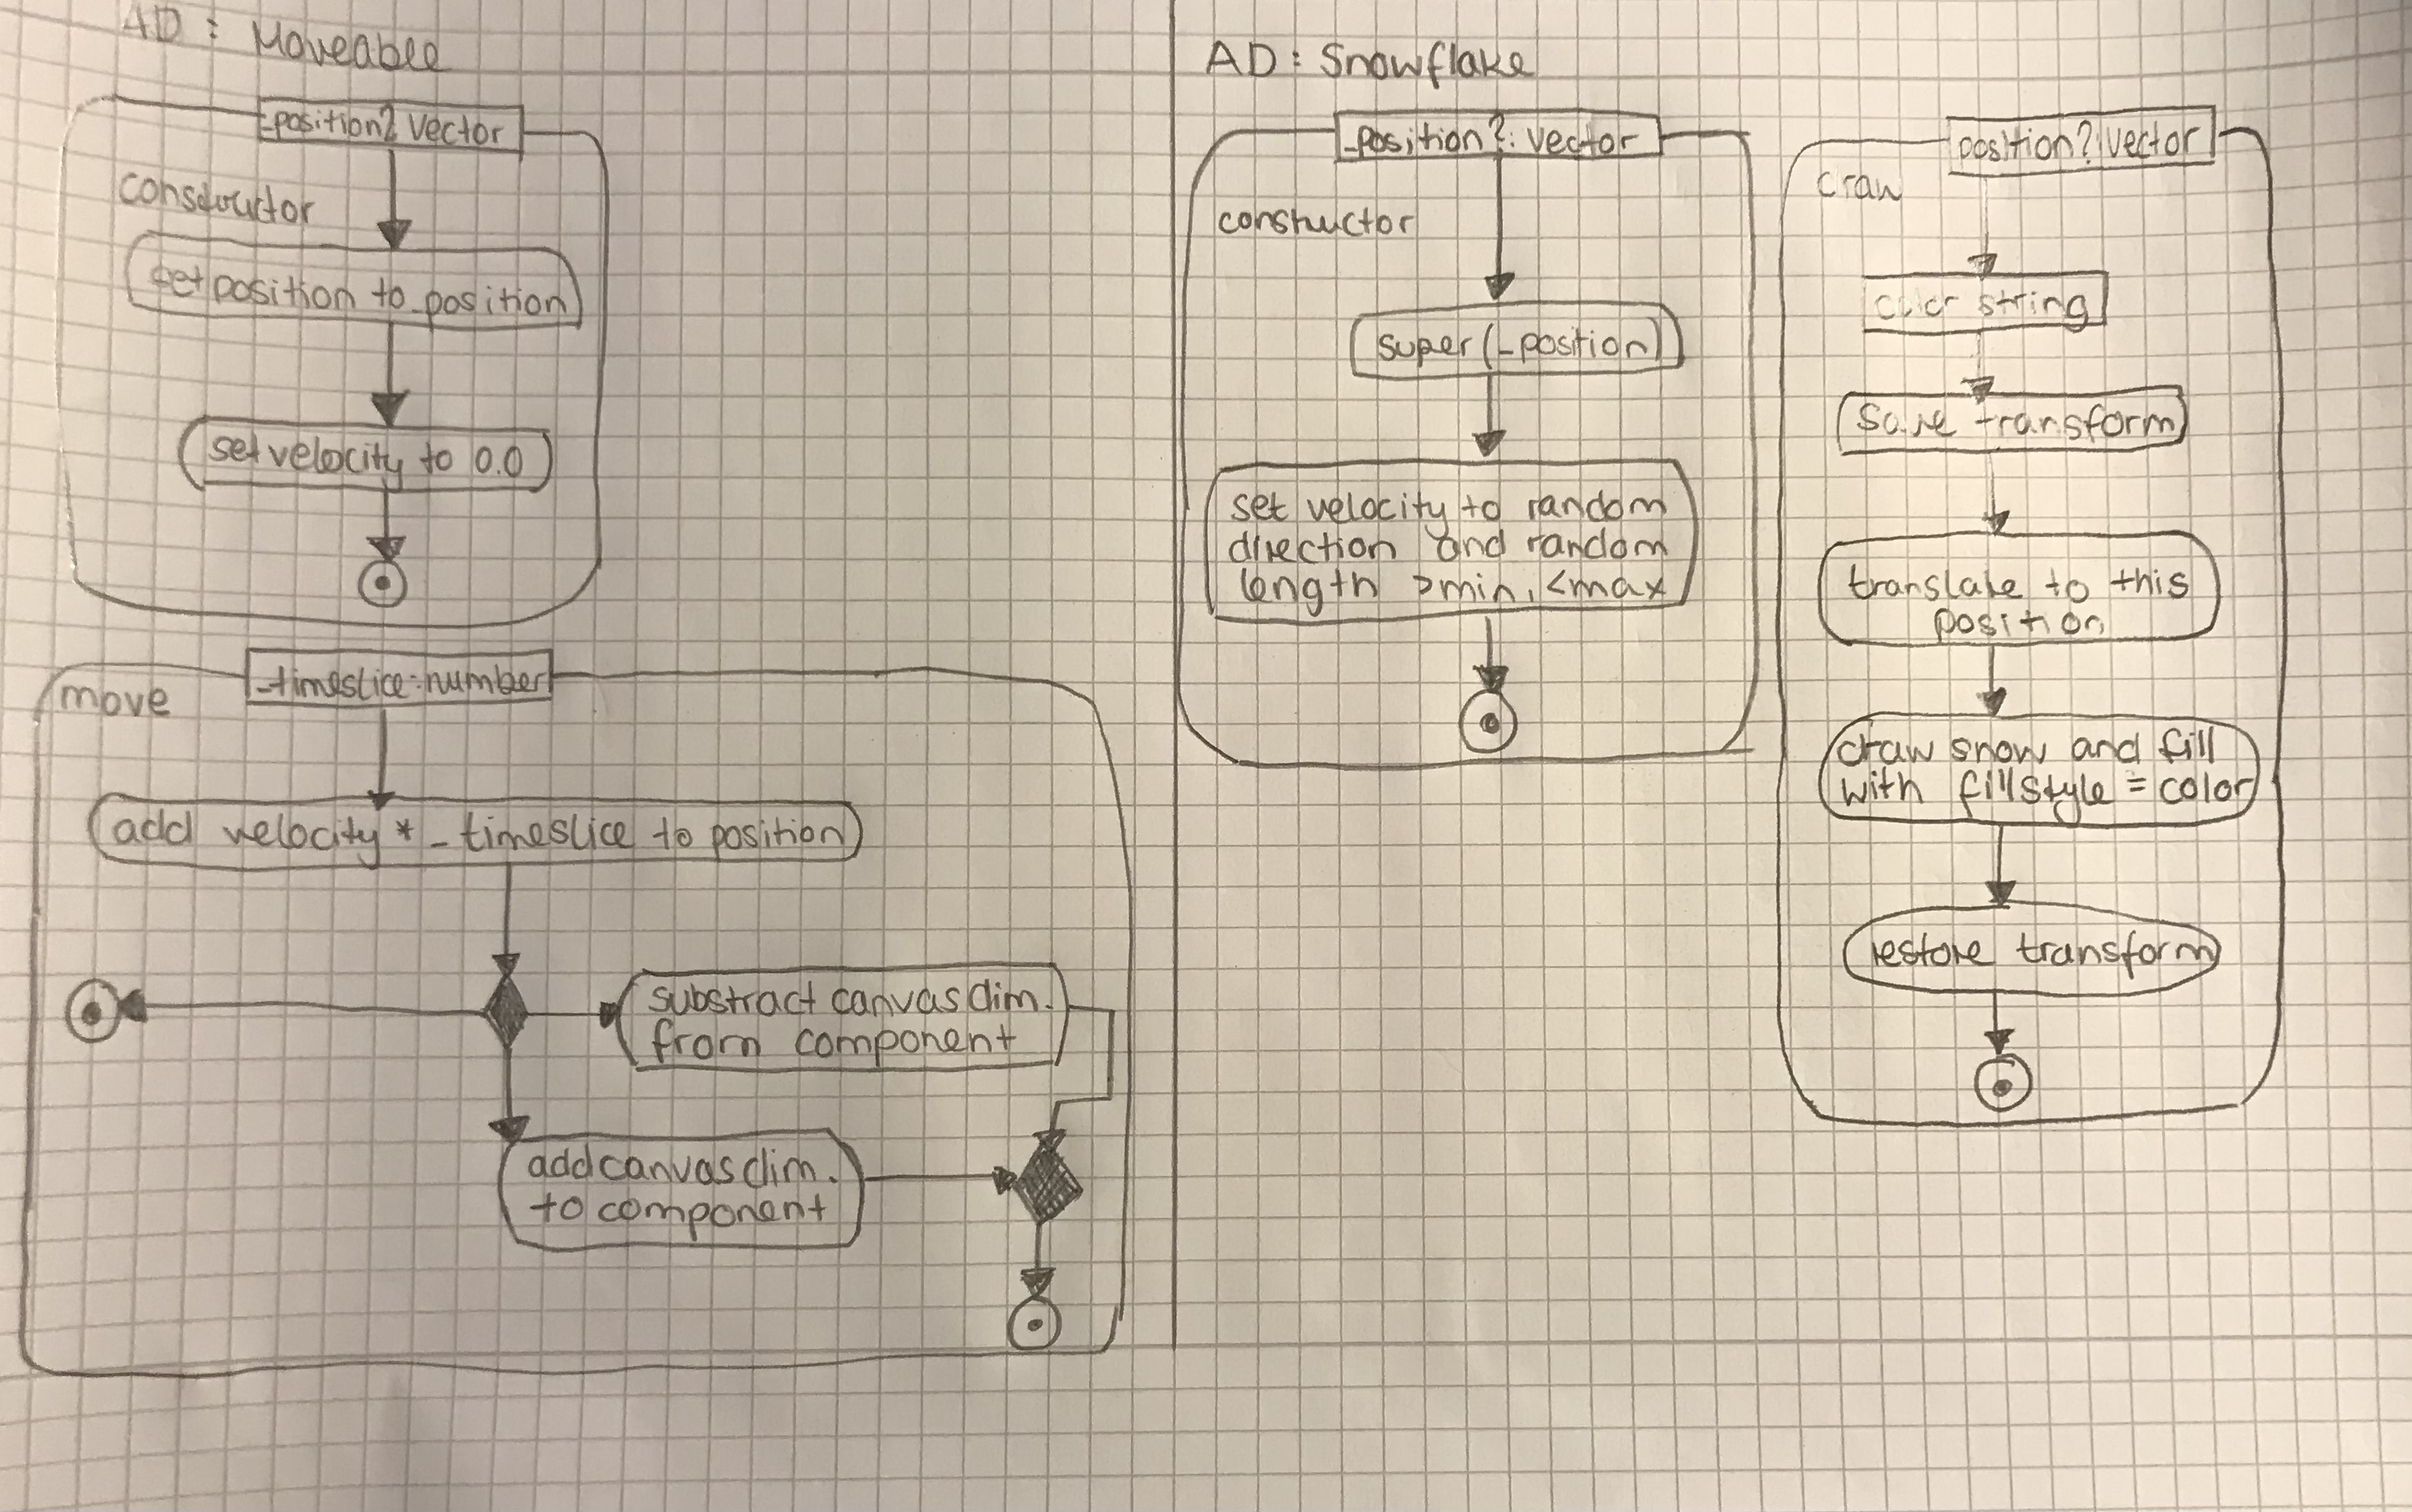 AD: Moveable
_position? Vector
constructor
set position to _position
set velocity to 0.0
_timeslice: number
move
add velocity * _timeslice to position
substract canvas dim.
from component
add canvas dim.
to component
AD: Snowflake
_position?: Vector
constructor
super(_position)
set velocity to random
direction and random
length >min, <max
position?: Vector
draw
color string
save transform
translate to this
position
draw snow and fill
with fillstyle = color
restore transform